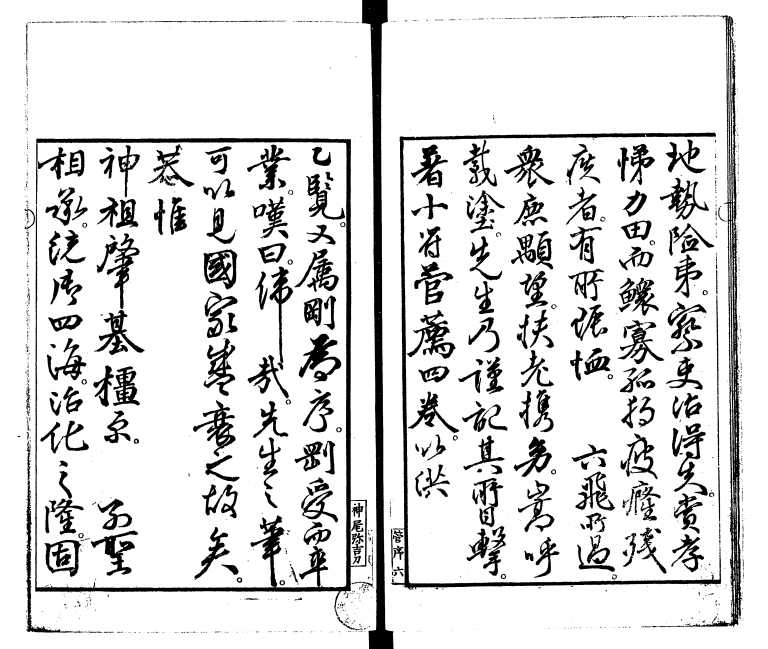 地勢險夷。察吏治得失。賞孝
悌力田。而鰥寡孤獨疲癃殘
疾者。有所賑恤。六飛所過。
衆庶顒望。扶老携幼。嵩呼
載塗。先生乃謹記其所目擊。
著十符菅薦四卷。以供
管序 六
乙覽。又屬剛爲序。剛受而卒
業。嘆曰。偉哉。先生之筆。
可以見國家盛衰之故矣。
恭惟
神祖肇基橿原。列聖
相承。統御四海。治化之隆。固
神尾弥吉刀